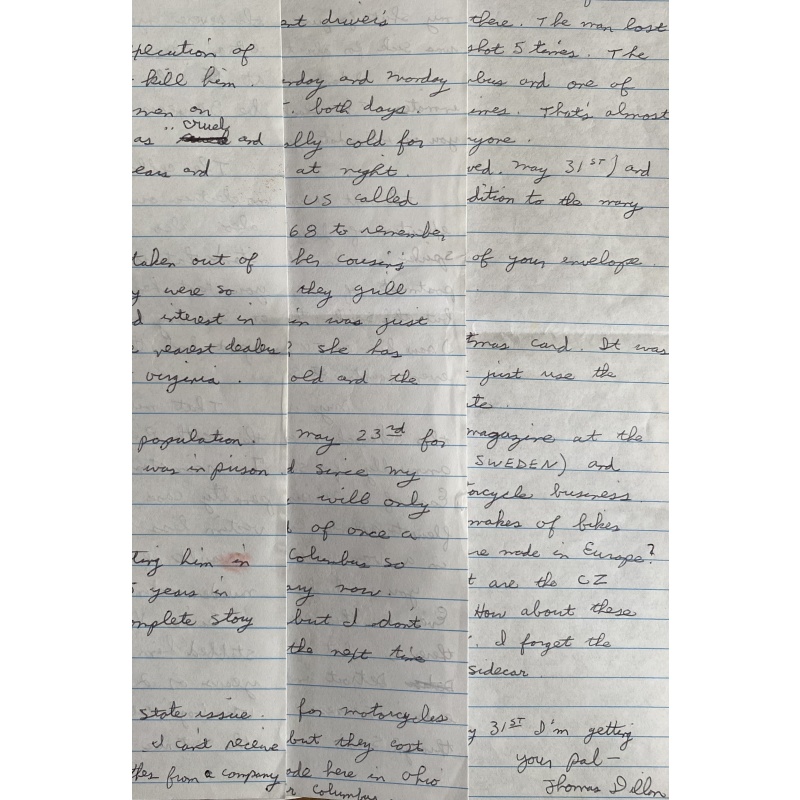 pecution of
kill him.
men on
cruel
as and
ears and
taken out of
y were so
d interest in
e nearest dealer
virginia.
population.
was in prison
ting him in
5 years in
mplete story
state issue.
I can't receive
thes from a company
nt driver's
nday and monday
T. both days.
ally cold for
at night.
US called
68 to remember
her cousins
they grill
in was just
? she has
old and the
may 23rd for
d since my
will only
d of once a
Columbus so
any now.
but I don't
the next time
for motorcycles
but they cost
ade here in ohio
r Columbus.
there. The man lost
shot 5 times. The
bus and one of
imes. That's almost
yone.
ved. may 31ST) and
dition to the many
of your envelope.
tmas card. It was
just use the
te.
magazine at the
SWEDEN) and
orcycle business.
makes of bikes
re made in Europe?
t are the CZ
How about these
. I forget the
sidecar.
y 31ST I'm getting
your pal-
Thomas Dillon